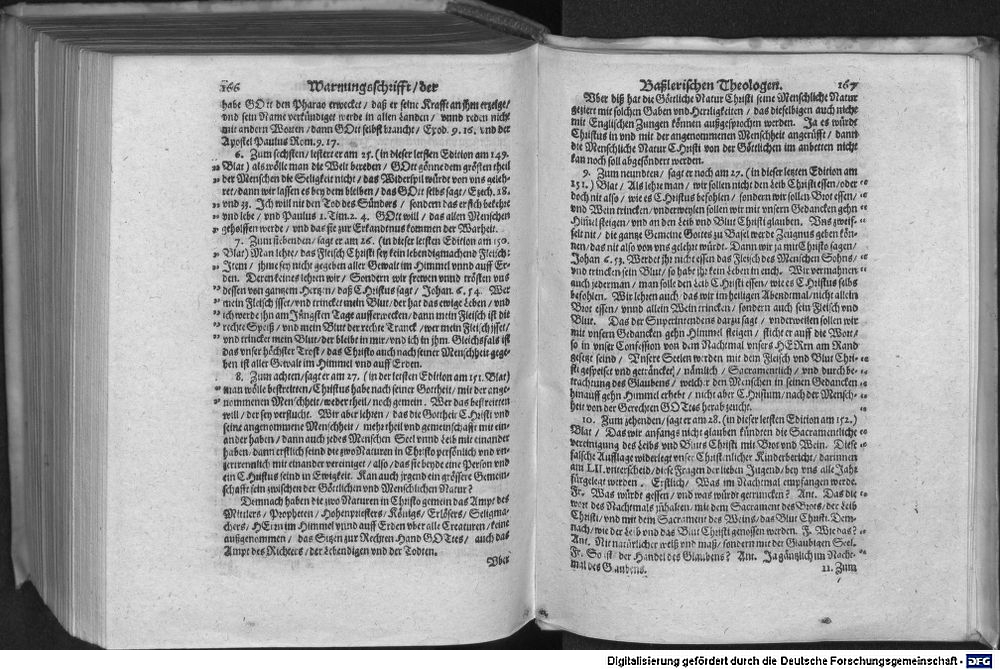 166 Warnungsschrifft / der
habe GOtt den Pharao erwecket / daß er seine Krafft an jhm erzeige /
vnd sein Name verkündiget werde in allen Landen / vnnd reden nicht
mit andern Worten / dann GOtt selbst braucht / Exod. 9. 16. vnd der
Apostel Paulus Rom. 9. 17.
6. Zum sechsten / lestert er am 25. (in dieser letsten Edition am 149.
Blat) als wölle man die Welt bereden / GOtt gönne dem grösten theil
der Menschen die Seligkeit nicht / das Widerspil würdt von vns geleh-
ret / dann wir lassen es bey dem bleiben / das GOtt selbs sagt / Ezech. 18.
vnd 33. Ich will nit den Tod des Sünders / sondern das er sich bekehre
vnd lebe / vnd Paulus 1. Tim. 2. 4. GOtt will / das allen Menschen
geholffen werde / vnd das sie zur Erkandtnus kommen der Warheit.
7. Zum siebenden / sagt er am 26. (in dieser letsten Edition am 150.
Blat) Man lehre / das Fleisch Christi sey kein lebendigmachend Fleisch:
Item / jhme sey nicht gegeben aller Gewalt im Himmel vnnd auff Er-
den. Deren keines lehren wir / Sondern wir frewen vnnd trösten vns
dessen von gantzem Hertzen / daß CHristus sagt / Johan. 6. 54. Wer
mein Fleisch isset / vnd trincket mein Blut / der hat das ewige Leben / vnd
ich werde jhn am Jüngsten Tage aufferwecken / dann mein Fleisch ist die
rechte Speiß / vnd mein Blut der rechte Tranck / wer mein Fleisch isset /
vnd trincket mein Blut / der bleibt in mir / vnd ich in jhm. Gleichsfals ist
das vnser höchster Trost / das Christo auch nach seiner Menschheit gege-
ben ist aller Gewalt im Himmel vnd auff Erden.
8. Zum achten / sagt er am 27. (in der letsten Edition am 151. Blat)
man wölle bestreitten / Christus habe nach seiner Gottheit / mit der ange-
nommenen Menschheit / weder theil / noch gemein. Wer das bestreitten
will / der sey verflucht. Wir aber lehren / das die Gottheit CHristi vnd
seine angenommene Menschheit / mehr theil vnd gemeinschafft mit ein-
ander haben / dann auch jedes Menschen Seel vnnd Leib mit einander
haben / dann erstlich seind die zwo Naturen in Christo persönlich vnd vn-
zertrennlich mit einander vereiniget / also / das sie beyde eine Person vnd
ein CHristus seind in Ewigkeit. Kan auch jrgend ein grössere Gemein-
schafft sein zwischen der Göttlichen vnd Menschlichen Natur?
Demnach haben die zwo Naturen in Christo gemein das Ampt des
Mittlers / Propheten / Hohenpriesters / Königs / Erlösers / Seligma-
chers / HErrn im Himmel vnnd auff Erden vber alle Creaturen / keine
außgenommen / das Sitzen zur Rechten Hand GOTtes / auch das
Ampt des Richters / der Lebendigen vnd der Todten.
Vber
Baßlerischen Theologen. 167
Vber diß hat die Göttliche Natur Christi seine Menschliche Natur
geziert mit solchen Gaben vnd Herrligkeiten / das dieselbigen auch nicht
mit Englischen Zungen können außgesprochen werden. Ja es würdt
Christus in vnd mit der angenommenen Menschheit angerüfft / dann
die Menschliche Natur CHristi von der Göttlichen im anbetten nicht
kan noch soll abgesöndert werden.
9. Zum neundten / sagt er nach am 27. (in dieser letzten Edition am
151.) Blat / Als lehre man / wir sollen nicht den Leib Christi essen / oder
doch nit also / wie es CHristus befohlen / sondern wir sollen Brot essen /
vnd Wein trincken / vnderweylen sollen wir mit vnsern Gedancken gehn
Himel steigen / vnd an den Leib vnd Blut Christi glauben. Vns zweif-
felt nit / die gantze Gemeine Gottes zu Basel werde Zeugnus geben kön-
nen / das nit also von vns gelehrt würdt. Dann wir ja mit Christo sagen /
Johan 6. 53. Werdet jhr nicht essen das Fleisch des Menschen Sohns /
vnd trincken sein Blut / so habt jhr kein Leben in euch. Wir vermahnen
auch jederman / man solle den Leib CHristi essen / wie es CHristus selbs
befohlen. Wir lehren auch das wir im heiligen Abendmal / nicht allein
Brot essen / vnnd allein Wein trincken / sondern auch sein Fleisch vnd
Blut. Das der Superintendens darzu sagt / vnderweilen sollen wir
mit vnsern Gedancken gehn Himmel steigen / sticht er auff die Wort /
so in vnser Confession von dem Nachtmal vnsers HERrn am Rand
gesetzt seind / Vnsere Seelen werden mit dem Fleisch vnd Blut Chri-
sti gespeiset vnd getränckt / nämlich / Sacramentlich / vnd durch be-
trachtung des Glaubens / welcher den Menschen in seinen Gedancken
hinauff gehn Himmel erhebt / nicht aber CHristum / nach der Mensch-
heit von der Gerechten GOTtes herab zeucht.
10. Zum zehenden / sagt er am 28. (in dieser letsten Edition am 152.)
Blat / Das wir anfangs nicht glauben köndten die Sacramentliche
vereinigung des Leibs vnd Bluts Christi mit Brot vnd Wein. Diese
falsche Aufflage widerlegt vnser Christenlicher Kinderbericht / darinnen
am LII. vnterscheid / diese Fragen der lieben Jugend / bey vns alle Jahr
fürgelegt werden. Erstlich / Was im Nachtmal empfangen werde.
Fr. Was würdt gessen / vnd was würdt getruncken? Ant. Das die
wort des Nachtmals jnhalten / mit dem Sacrament des Brots / der Leib
Christi / vnd mit dem Sacrament des Weins / das Blut Christi. Dem-
nach / wie der Leib vnd das Blut Christi genossen werden. F. Wie das?
Ant. Nit natürlicher weiß vnd maß / sondern mit der Glaubigen Seel.
Fr. So ist der Handel des Glaubens? Ant. Ja gäntzlich im Nacht-
mal des Glaubens.
11. Zum
Digitalisierung gefördert durch die Deutsche Forschungsgemeinschaft - DFG